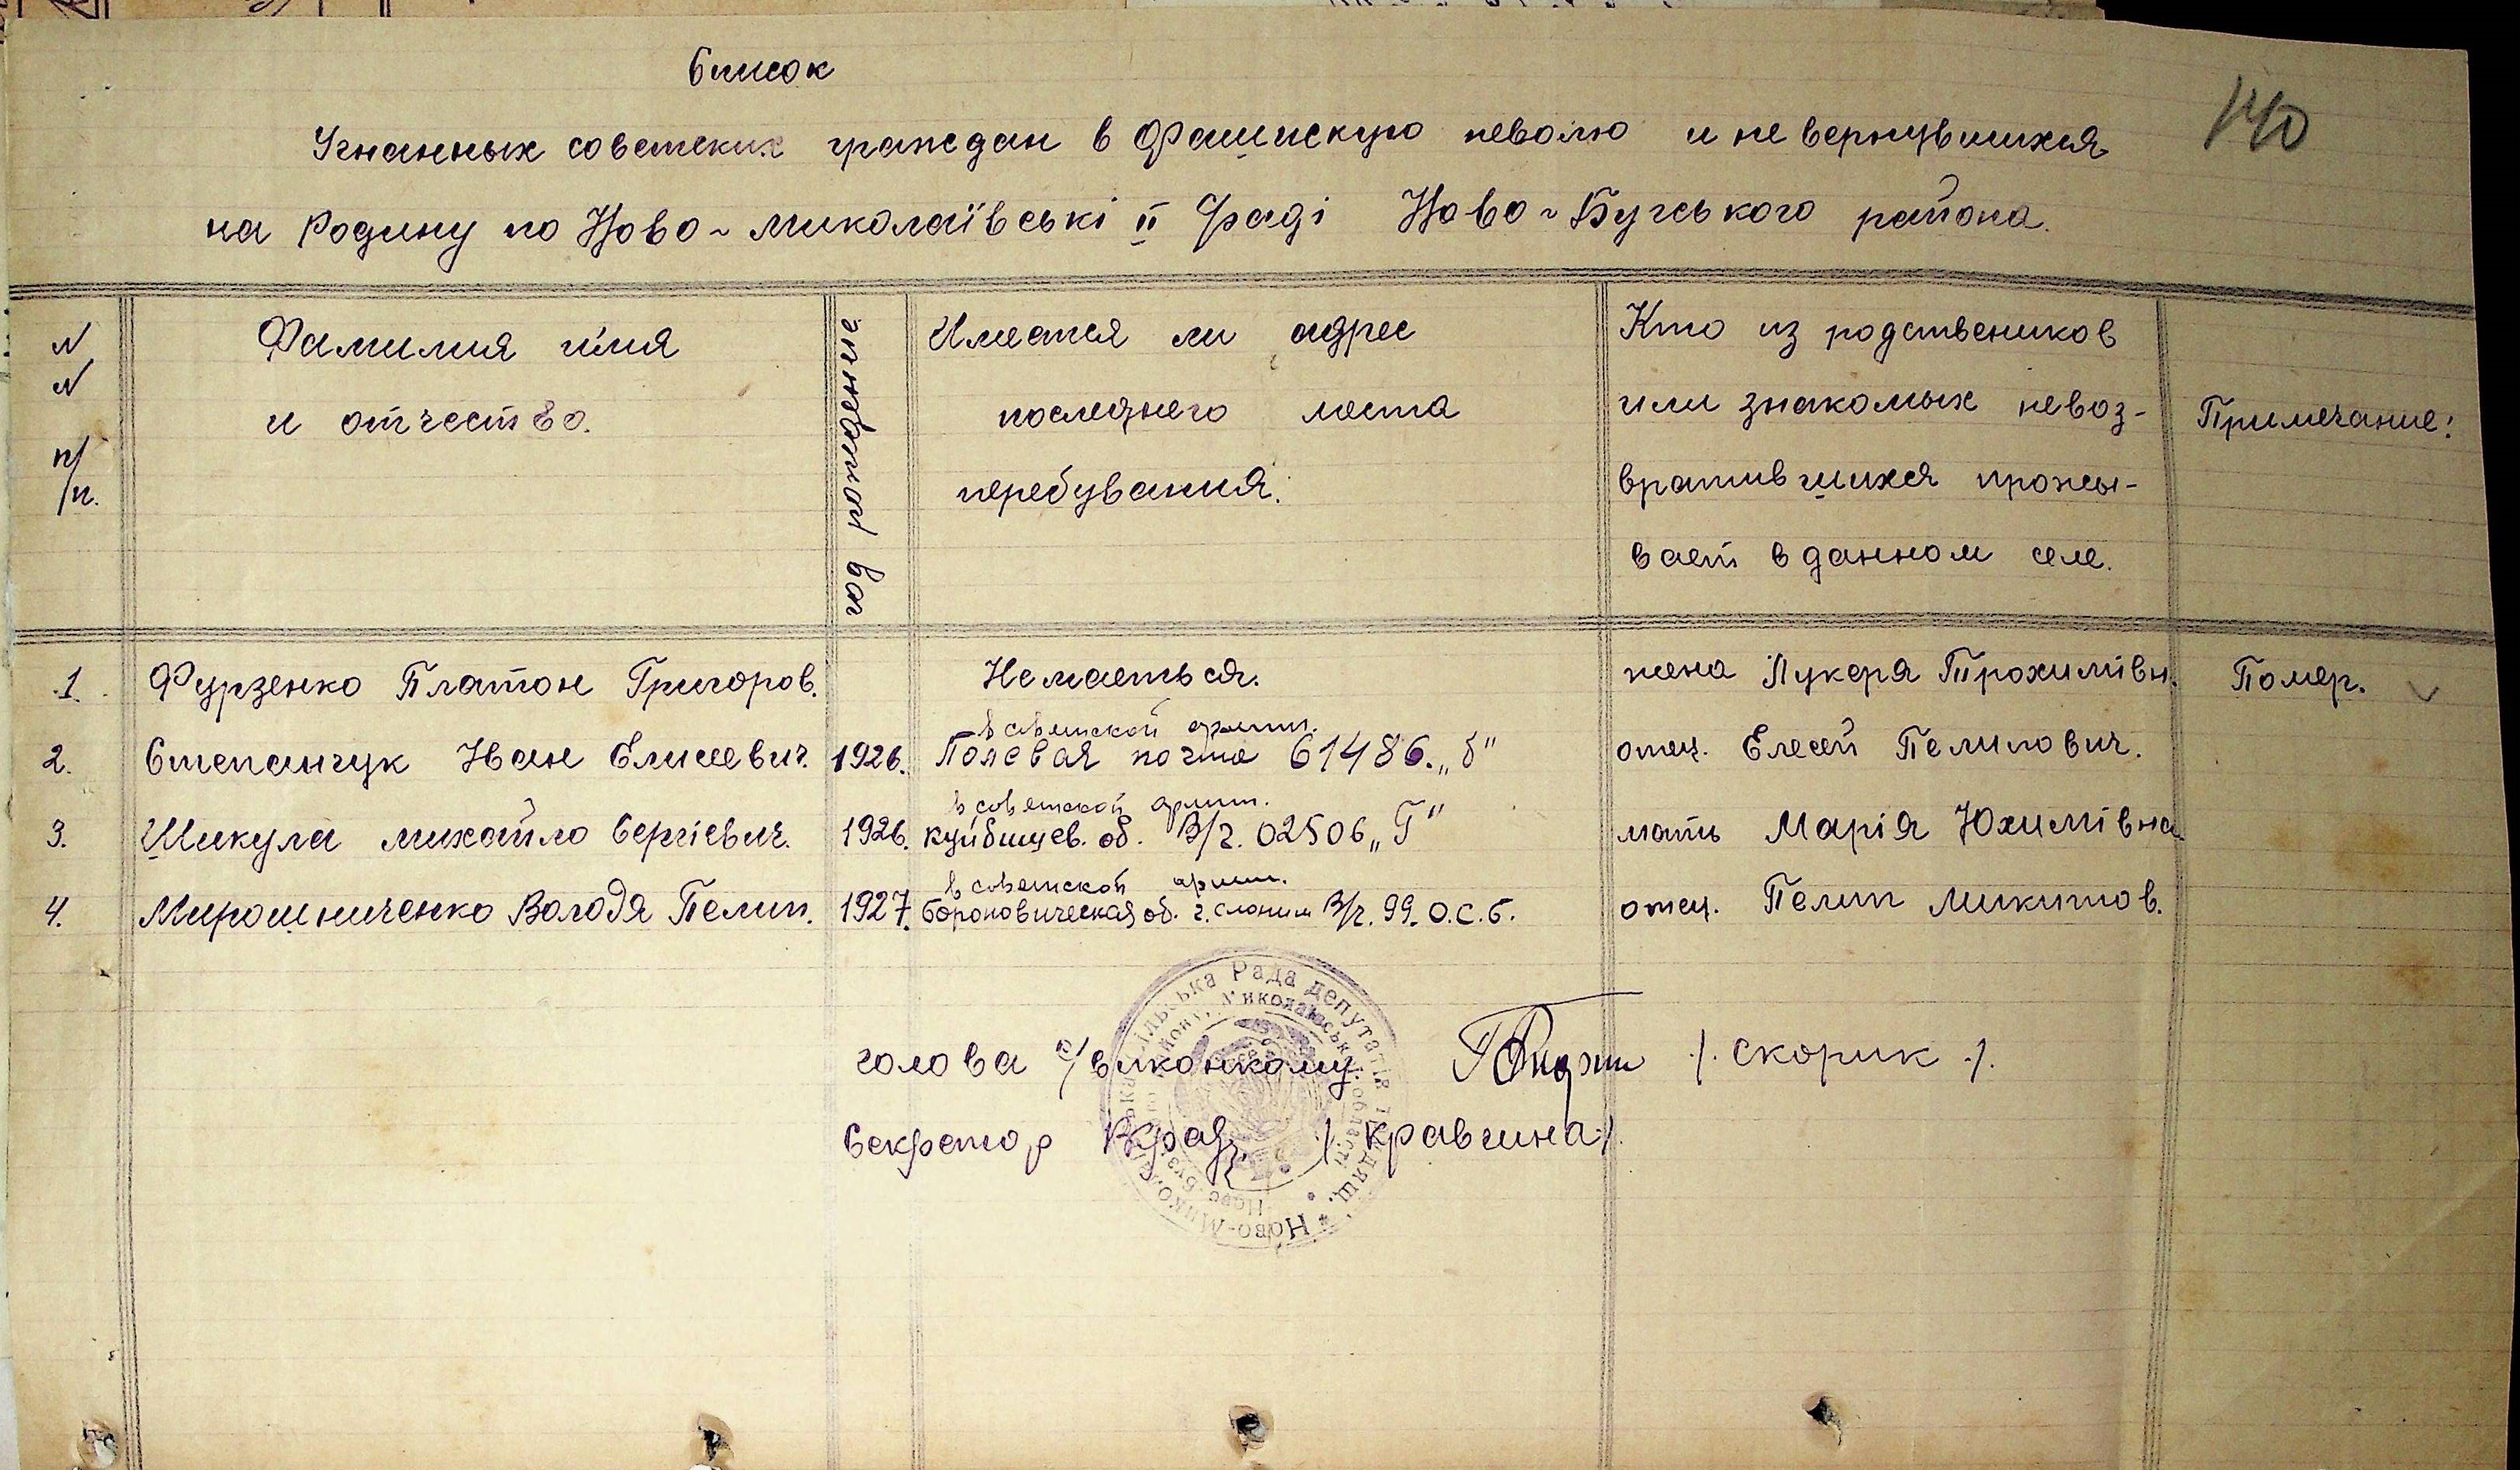 Список
140
Угнанных советских граждан в Фашискую неволю и не вернувшихся
на Родину по Ново-миколаївські II Раді Ново-Бугського района.
N N п/п.
Фамилия имя
и отчество.
год рождение
Имеатся ли адрес
последнего места
перебування.
Кто из родствеников
или знакомых невоз-
вратившихся прожы-
вает в данном селе.
Примечание:
1. Фурзенко Платон Григоров. Немаеться. жена Лукеря Трохимівн. Помер.
в советской армии.
2. Степанчук Иван Елисеевич. 1926. Полевая почта 61486. „б" отец. Елесей Пелипович.
в советской армии.
3. Шикула михайло Сергієвич. 1926. куйбишев. об. В/ч. 02506 „Г" мать Марія Юхимівна
в советской армии.
4. Мирошниченко Володя Пелип. 1927. Бороновическая об. г. Слоним В/ч. 99. О.С.Б. отец. Пелип микитов.
голова с/виконкому /. скорик ./.
Секретор /. кравчина /.
Ново-Микола ільська Рада депутатів трудящ.
Ново-Буз району, Миколаївської області